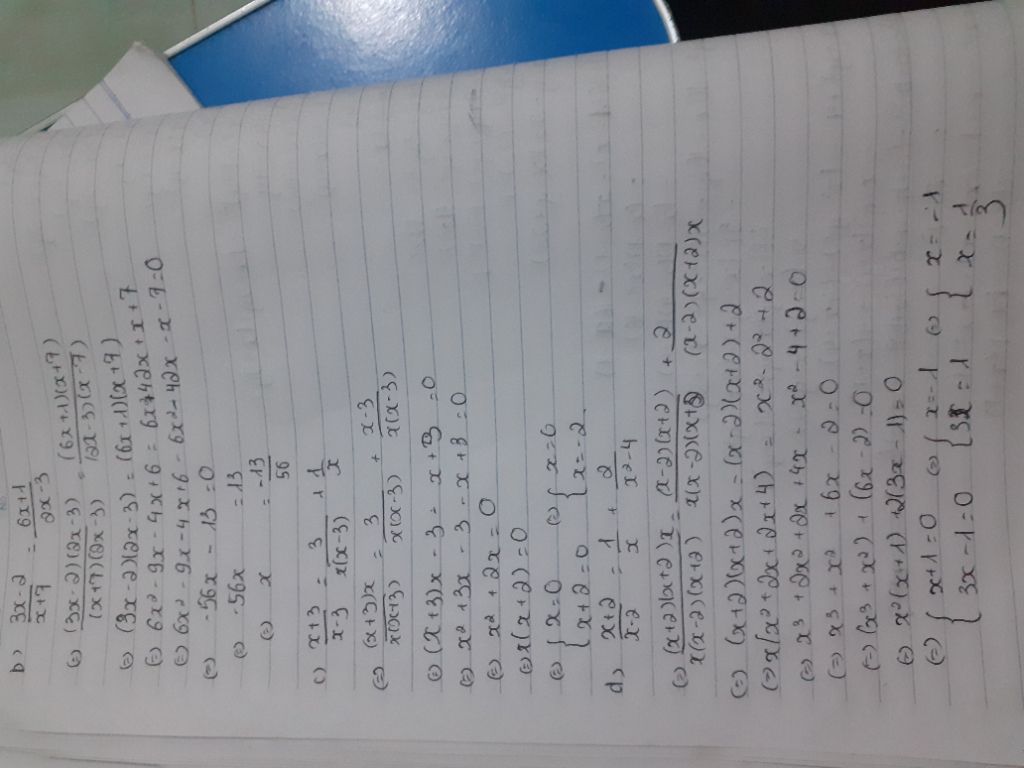 b) \frac{3x-2}{x+7} = \frac{6x+1}{2x-3}
(=) \frac{(3x-2)(2x-3)}{(x+7)(2x-3)} = \frac{(6x+1)(x+7)}{(2x-3)(x-7)}
(=) (3x-2)(2x-3) = (6x+1)(x+7)
(=) 6x² - 9x - 4x + 6 = 6x + 42x + x + 7
(=) 6x² - 9x - 4x + 6 - 6x² - 42x - x - 7 = 0
(=) -56x - 13 = 0
(=) -56x = 13
(=) x = \frac{-13}{56}
c) \frac{x+3}{x-3} = \frac{3}{x(x-3)} + \frac{1}{x}
(=) \frac{(x+3)x}{x(x+3)} = \frac{3}{x(x-3)} + \frac{x-3}{x(x-3)}
(=) (x+3)x - 3 - x + 3 = 0
(=) x² + 3x - 3 - x + 3 = 0
(=) x² + 2x = 0
(=) x(x+2) = 0
(=) { x = 0 (=) { x = 0
x + 2 = 0 x = -2
d) \frac{x+2}{x-2} = \frac{1}{x} + \frac{2}{x²-4}
(=) \frac{(x+2)(x+2)x}{x(x-2)(x+2)} = \frac{(x-2)(x+2)}{x(x-2)(x+2)} + \frac{2}{(x-2)(x+2)x}
(=) (x+2)(x+2)x = (x-2)(x+2) + 2
(=) x(x² + 2x + 2x + 4) = x² - 2² + 2
(=) x³ + 2x² + 2x + 4x - x² - 4 + 2 = 0
(=) x³ + x² + 6x - 2 = 0
(=) (x³ + x²) + (6x - 2) = 0
(=) x²(x+1) + 2(3x-1) = 0
(=) { x + 1 = 0 (=) { x = -1 (=) { x = -1
3x - 1 = 0 3x = 1 x = \frac{1}{3}